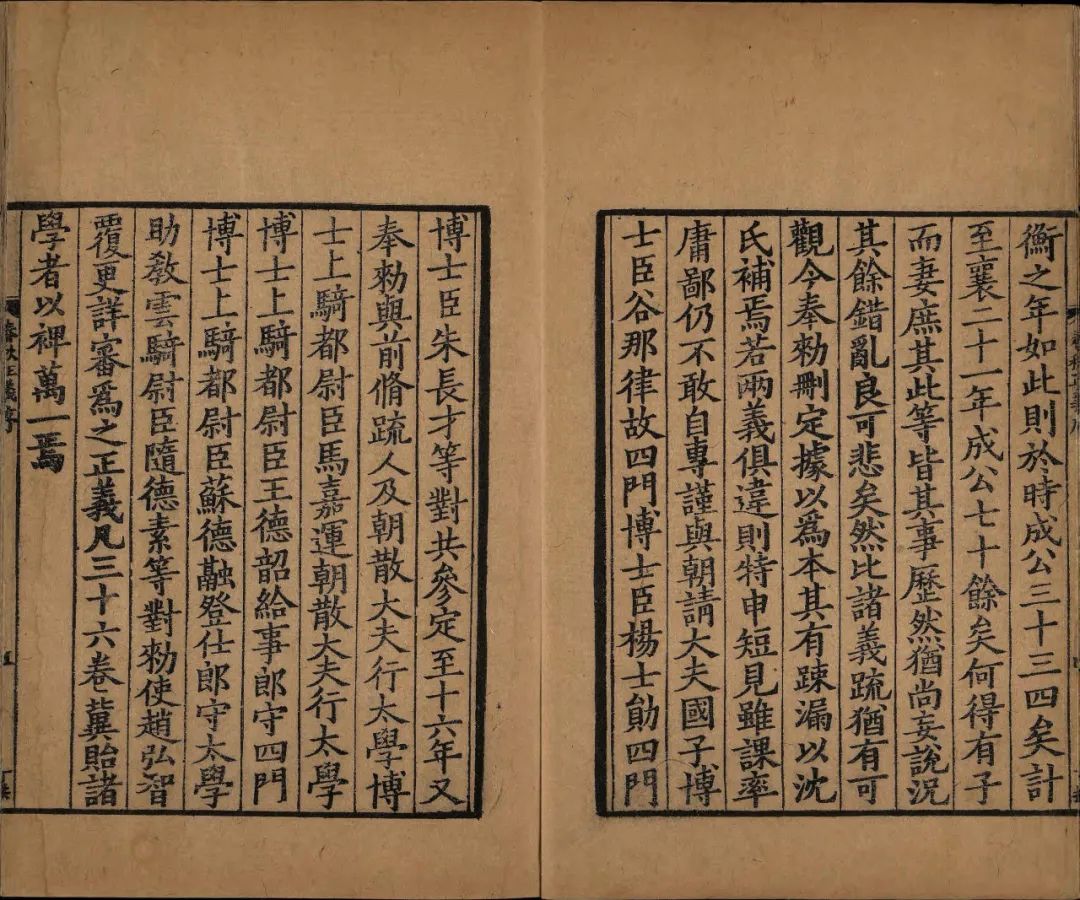 衡之年如此則於時成公三十三四矣計
至襄二十一年成公七十餘矣何得有子
而妻庶其此等皆其事歷然猶尚妄說况
其餘錯亂良可悲矣然比諸義疏猶有可
觀今奉勑刪定據以為本其有踈漏以沈
氏補焉若兩義俱違則特申短見雖課率
庸鄙仍不敢自專謹與朝請大夫國子博
士臣谷那律故四門博士臣楊士勛四門
博士臣朱長才等對共參定至十六年又
奉勑與前脩疏人及朝散大夫行太學博
士上騎都尉臣馬嘉運朝散大夫行太學
博士上騎都尉臣王德韶給事郎守四門
博士上騎都尉臣蘇德融登仕郎守太學
助教雲騎尉臣隨德素等對勑使趙弘智
覆更詳審為之正義凡三十六卷兾貽諸
學者以裨萬一焉
春秋正義序
五